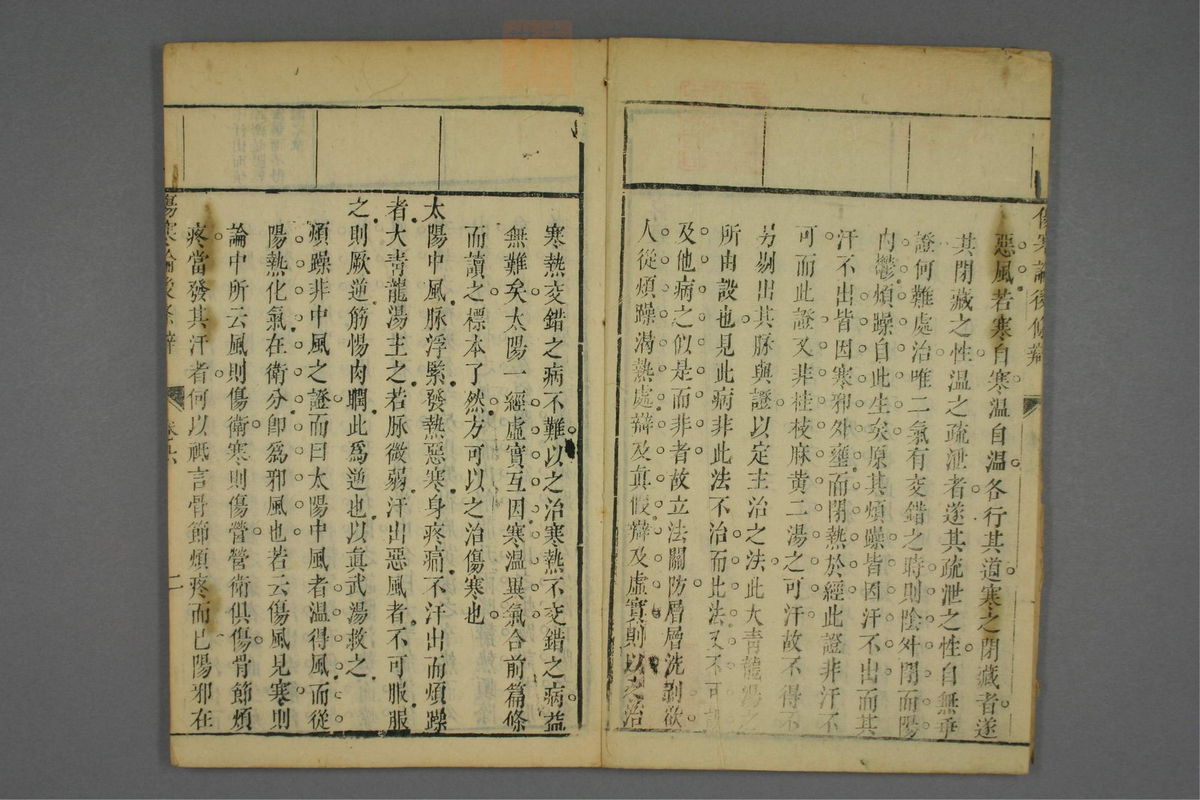 惡風若寒自寒温自温各行其道寒之閉藏者遂
其閉藏之性温之疏泄者遂其疏泄之性自無乖
證何難處治唯二氣有变錯之時則陰外閉而陽
内鬱煩躁自此生矣原其煩躁皆因汗不出而其
汗不出皆因寒邪外壅而閉熱於經此證非汗不
可而此證又非桂枝麻黄二湯之可汗故不得不
另剔出其脉與證以定主治之法此大青龍湯之
所由設也見此病非此法不治而此法又不可
及他病之似是而非者故立法關防層層洗剔欲
人從煩躁渴熱處辯及真假辯及虛實則以之治
寒熱变錯之病不難以之治寒熱不变錯之病益
無難矣太陽一經虛實互因寒温異氣合前篇條
而讀之標本了然方可以之治傷寒也
太陽中風脉浮緊發熱惡寒身疼痛不汗出而煩躁
者大青龍湯主之若脉微弱汗出惡風者不可服服
之則厥逆筋惕肉瞤此爲逆也以真武湯救之
煩躁非中風之證而曰太陽中風者温得風而從
陽熱化氣在衛分卽爲邪風也若云傷風見寒則
論中所云風則傷衛寒則傷營營衛俱傷骨節煩
疼當發其汗者何以祗言骨節煩疼而已陽邪在
傷寒論後條辯
卷六
二